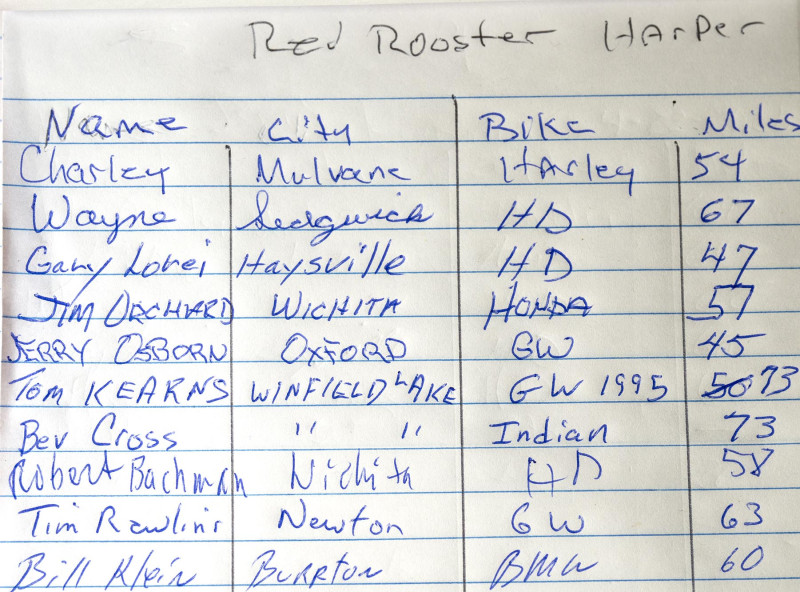 Red Rooster Harper
Name City Bike Miles
Charley Mulvane Harley 54
Wayne Sedgwick HD 67
Gary Lorei Haysville HD 47
JIM ORCHARD WICHITA HONDA 57
JERRY OSBORN OXFORD GW 45
TOM KEARNS WINFIELD LAKE GW 1995 50 73
Bev Cross " " Indian 73
Robert Bachman Wichita HD 58
Tim Rawlins Newton GW 63
Bill Klein Burrton BMW 60